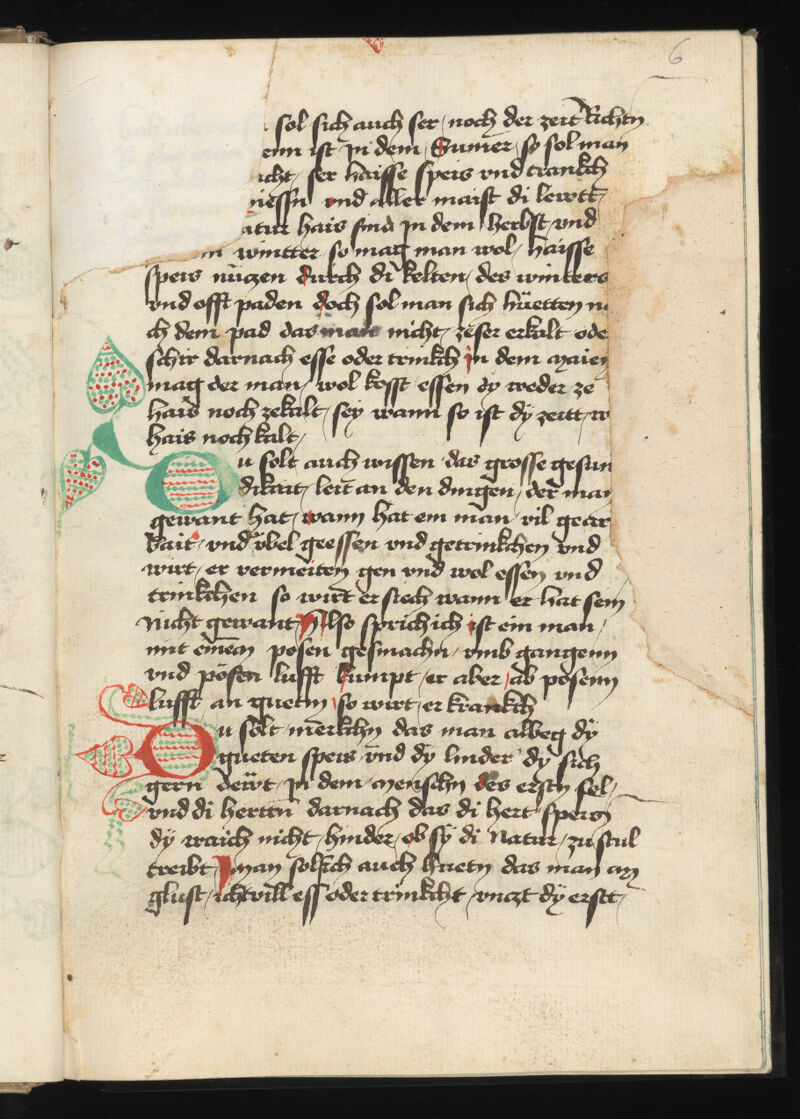 6
sol sich auch ser noch der zeit Richtn
enn ist in dem Sumer so sol man
icht ser haisse speis vnd tranckh
niessn vnd aller maist di lewtt
atur hais sind in dem herbst vnd
m wintter so mag man wol haisse
speis nüczen durch di kelten des winters
vnd offt paden doch sol man sich hüetten n
ch dem pad das man nicht zeser erkalt ode
schir darnach esse oder trinkch in dem mayen
mag der man wol kosst essen dy weder ze
hais noch zekalt sey wann so ist dy zeitt w
hais noch kalt
Du solt auch wissen das grosse gesun
dikait leit an den dingen der man
gewant hat wann hat ein man vil gear
bait vnd vbel geessen vnd getrinkchen vnd
wirt er vermeiten gen vnd wol essen vnd
trinkchen so wirt er siech wann er hat sein
nicht gewant Also sprich ich ist ein man
mit einem posen gesmachn vmb gangenn
vnd pösen lufft kumpt er aber ab posenn
lufft an guetn so wirt er kranckh
Du solt merkchn das man albeg dy
gueten speis vnd dy linder dy sich
gern dewt in dem menschn des erstn sol
vnd di hertn darnach das di hert speis
dy waich nicht hinder ob sy di Natur zu stul
treibt man sol sich auch huetn das man an
glust icht vill ess oder trinkcht vnczt dy erstt